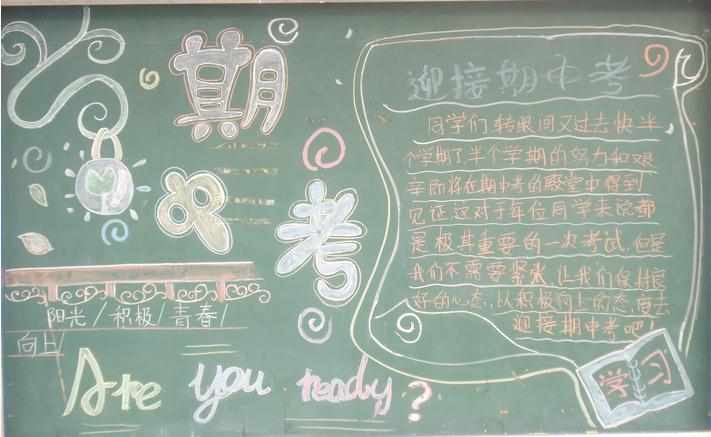 期中考
迎接期中考
同学们转眼间又过去快半
个学期了半个学期的努力和艰
辛即将在期中考的殿堂中得到
见证这对于每位同学来说都
是极其重要的一次考试,但是
我们不需要紧张,让我们保持良
好的心态,从积极向上的态度去
迎接期中考吧!
阳光/积极/青春/
向上/
学习
Are you ready?